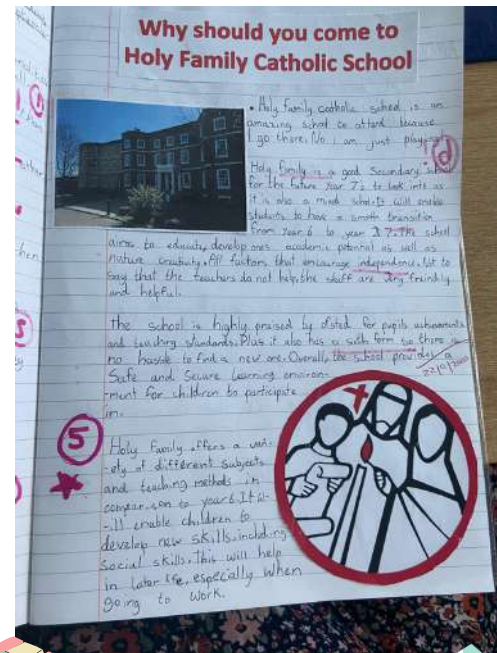 Why should you come to
Holy Family Catholic School
• Holy family catholic school is an
amazing school to attend because
I go there. No I am just playing
Holy family is a good Secondary school
for the future Year 7s to look into as
it is also a mixed school. It will enable
students to have a smooth transition
from year 6 to year 7. The school
aims to educate, develop ones academic potential as well as
nurture creativity. All factors that encourage independence. Not to
say that the teachers do not help, the staff are very friendly
and helpful.
The school is highly praised by ofsted for pupils achievements
and teaching standards. Plus it also has a sixth form so there is
no hassle to find a new one. Overall, the school provides a
Safe and Secure learning environ-
-ment for children to participate
in.
5
Holy family offers a vari-
-ety of different subjects
and teaching methods in
comparison to year 6. It w-
-ill enable children to
develop new skills, including
Social skills. This will help
in later life, especially when
going to work.